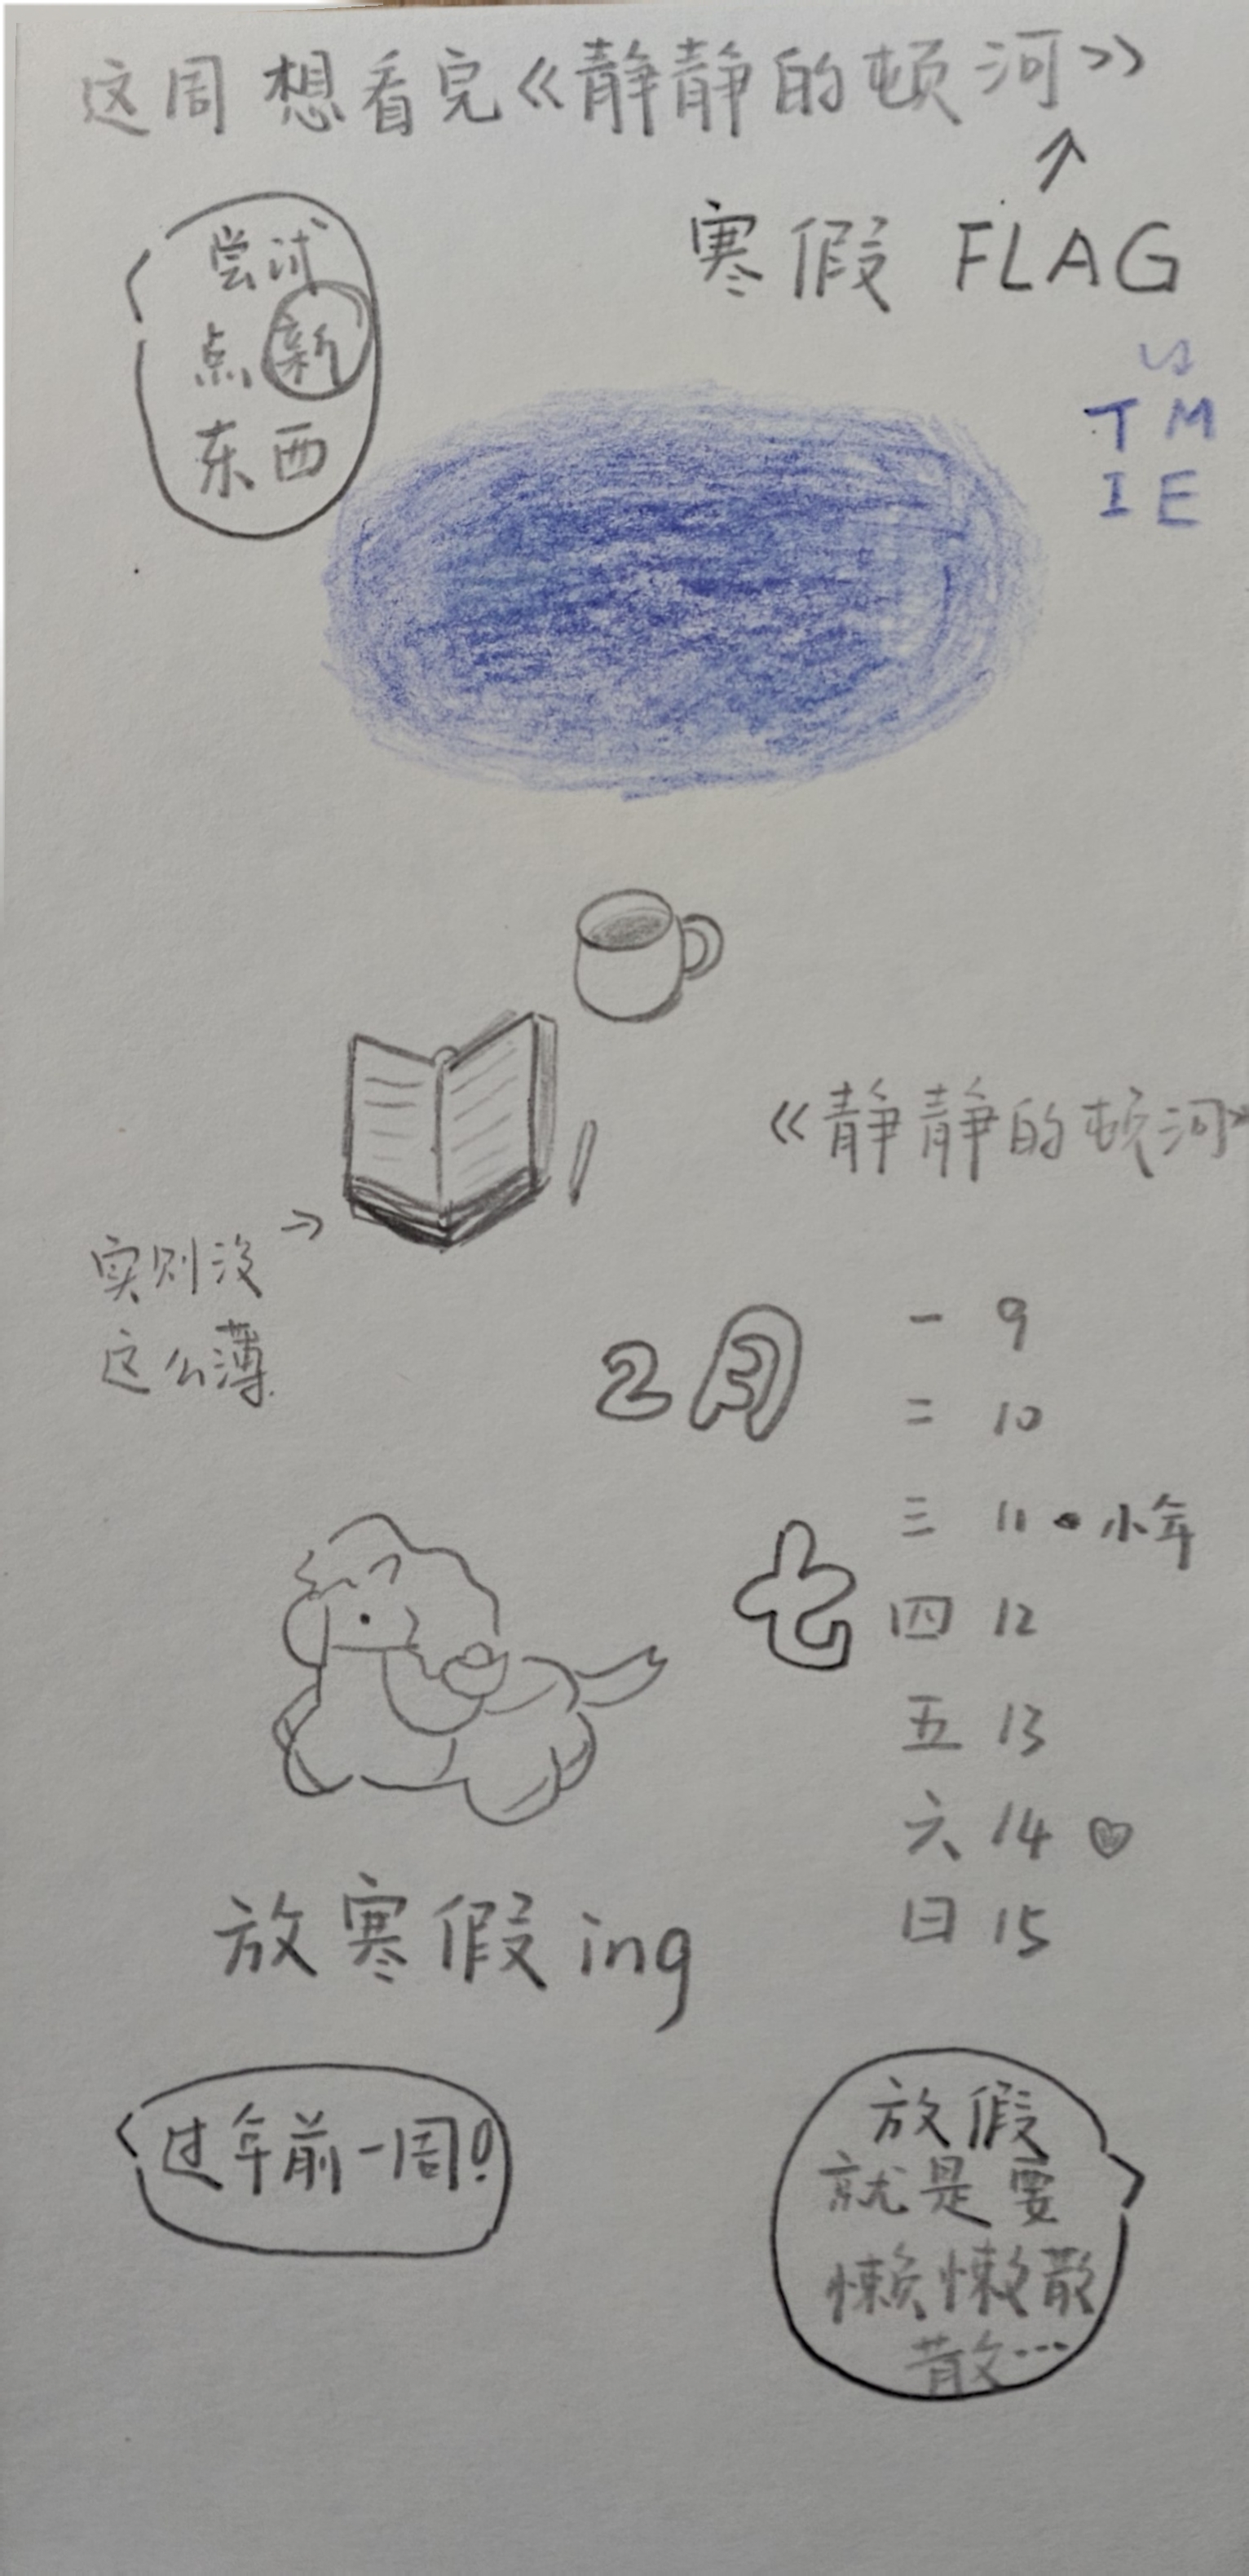 这周想看完《静静的顿河》
寒假 FLAG
尝试
点新
东西
T M
I E
《静静的顿河》
实则没
这么薄
2月
七
一 9
二 10
三 11 小年
四 12
五 13
六 14
日 15
放寒假ing
过年前一周!
放假
就是要
懒懒散
散…